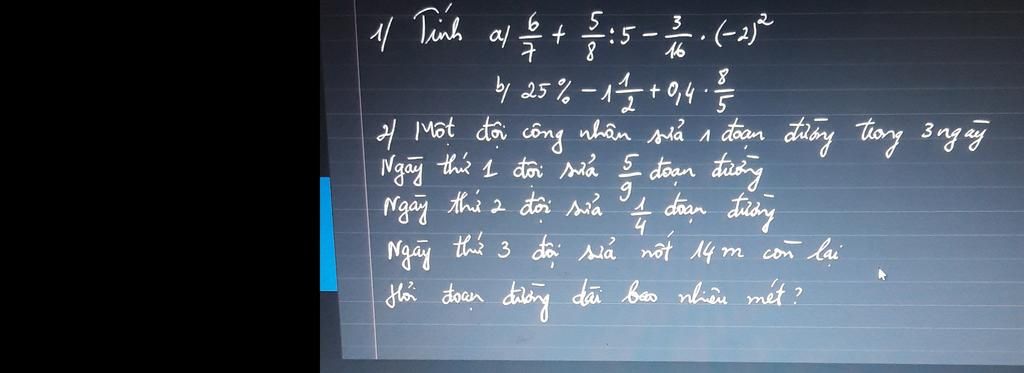 1/ Tính a/ 6/7 + 5/8 : 5 - 3/16 . (-2)²
b/ 25% - 1 1/2 + 0,4 . 8/5
2/ Một đội công nhân sửa 1 đoạn đường trong 3 ngày
Ngày thứ 1 đội sửa 5/9 đoạn đường
Ngày thứ 2 đội sửa 1/4 đoạn đường
Ngày thứ 3 đội sửa nốt 14m còn lại
Hỏi đoạn đường dài bao nhiêu mét?